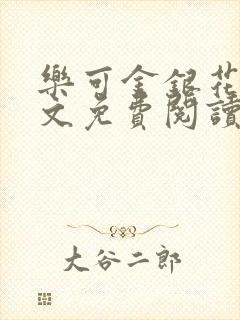 樂可金銀花
文免費閱讀
大谷二郎